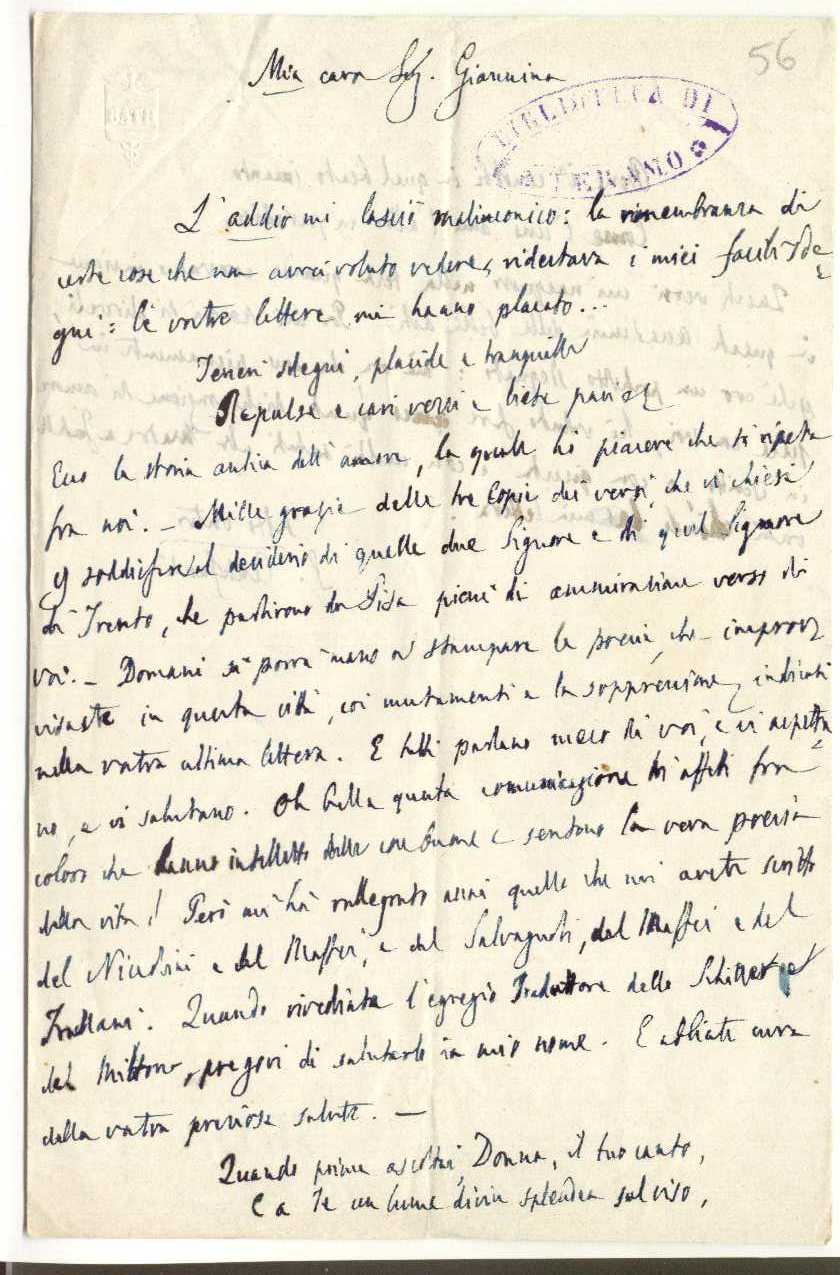 56
Mia cara Sig. Giannina
BIBLIOTECA DI
TERAMO
L'addio mi lasciò malinconico: la rimembranza di
certe cose che non avrei voluto vedere, ridestava i miei facili sde=
gni: le vostre lettere mi hanno placato...
Teneri sdegni, placide e tranquille
Repulse e cari vezzi e liete paci
Ecco la storia antica dell'amore, la quale ho piacere che si ripeta
fra noi. — Mille grazie delle tre Copie dei versi, che vi chiesi
soddisfare al desiderio di quelle due Signore e di quel Signore
di Trento, che partirono da Pisa pieni di ammirazione verso di
voi. — Domani si porrà mano a stampare le poesie, che improv=
visaste in questa città, coi mutamenti e la soppressione, indicati
nella vostra ultima lettera. E tutti parlano meco di voi, e vi aspetta=
no, e vi salutano. Oh bella questa comunicazione di affetti fra
coloro che hanno intelletto delle cose buone e sentono la vera poesia
della vita! Però mi ha rallegrato assai quello che mi avete scritto
del Niccolini e del Maffei, e del Salvagnoli, del Maffei e del
Frullani. Quando rivediate l'egregio Traduttore dello Schiller e
del Milton, pregovi di salutarlo in mio nome. E abbiate cura
della vostra preziosa salute. —
Quando prima ascoltai, Donna, il tuo canto,
E a Te un lume divin splendea sul viso,